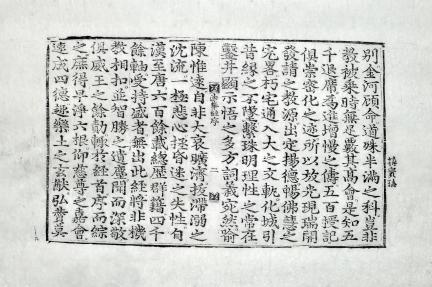 別金河顧命道殊半滿之科豈非
教被乘時無足覈其高會是知五
千退席爲進增慢之儔五百授記
俱崇密化之迹所以放光現瑞開
發請之教源出定揚德暢佛慧之
宏畧朽宅通入大之文軌化城引
昔緣之不墜繫珠明理性之常在
鑿井顯示悟之多方詞義宛然喻
二
陳惟遠自非大哀曠濟拔滯溺之
沈流一極悲心拯昏迷之失性自
漢至唐六百餘載總歷群籍四千
餘軸受持盛者無出此經將非機
教相扣並智勝之遺塵聞而深敬
俱威王之餘勣輒於經首序而綜
之庶得早淨六根仰慈尊之嘉會
速成四德趣樂土之玄猷弘贊莫